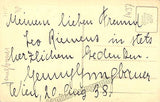 Meinem lieben Freund
Leo Riemens in stets
herzlichem Gedenken.
Wien, 20. Aug. 38.